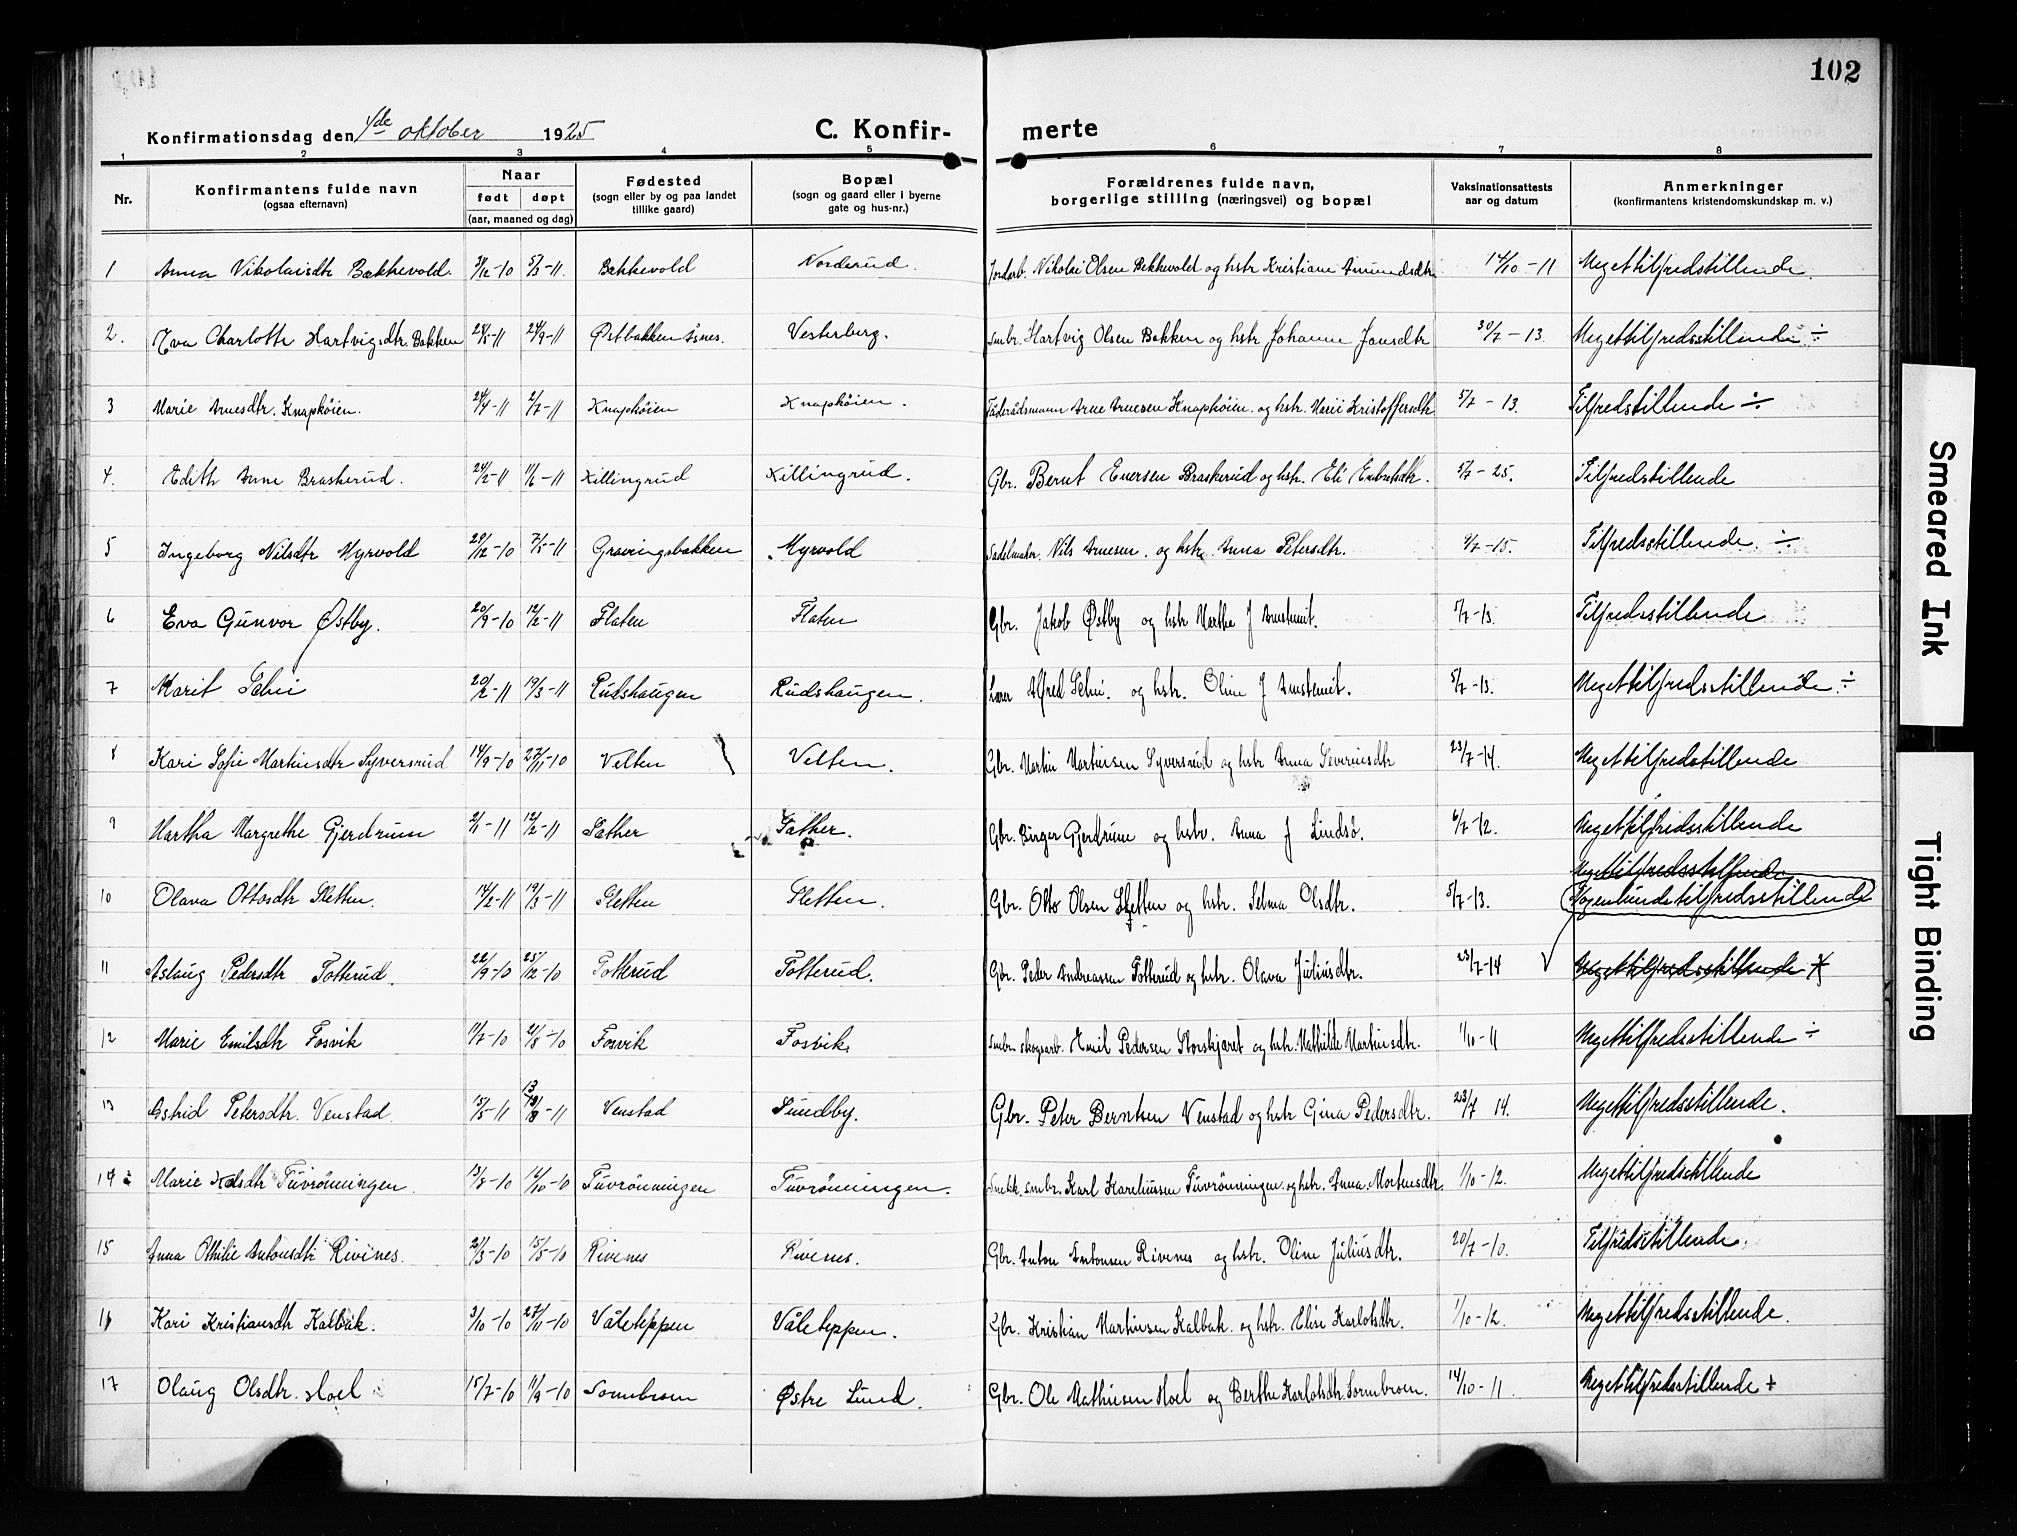 102
Konfirmationsdag den 4de oktober 1925 C. Konfir- merte
1 2 3 4 5 6 7 8
Nr. Konfirmantens fulde navn (ogsaa efternavn) Naar født døpt (aar, maaned og dag) Fødested (sogn eller by og paa landet tillike gaard) Bopæl (sogn og gaard eller i byerne gate og hus-nr.) Forældrenes fulde navn, borgerlige stilling (næringsvei) og bopæl Vaksinationsattests aar og datum Anmerkninger (konfirmantens kristendomskundskap m. v.)
1 Anna Nikolaisdtr Bækkevold. 31/12-10 5/3-11 Bækkevold Norderud. Jordarb. Nikolai Olsen Bekkevold og hstr Kristiane Amundsdtr 14/10-11 Megettilfredstillende.
2. Eva Charlotte Hartvigsdtr. Bakken 24/5-11 24/9-11 Østbakken Vesterberg. Smbr. Hartvig Olsen Bakken og hstr Johanne Jansdtr 30/7-13. Megettilfredsstillende ÷
3 Marie Arnesdtr. Knaphøien. 24/4-11 2/7-11 Knaphøien Knaphøien. Føderådsmann Arne Arnesen Knaphøien og hstr. Marie Kristoffersdtr 5/7-13. Tilfredstillende ÷
4. Edith Anne Braskerud. 24/2-11 11/6-11 Killingrud Killingrud. Gbr. Bernt Evensen Braskerud og hstr. Eli Enbretsdtr. 5/7-25. Tilfredstillende
5 Ingeborg Nilsdtr Myrvold 29/12-10 7/5-11 Gravingsbakken Myrvold Sadelmaker Nils Arnesen og hstr Anna Petersdtr. 4/7-15. Tilfredsstillende ÷
6 Eva Gunvor Østby. 20/9-10 12/2-11 Flaten Flaten Gbr. Jakob Østby og hstr Martha J 5/7-13. Tilfredsstillende
7 Marit Sæhli 20/2-11 19/3-11 Rudshaugen Rudshaugen. Lærer Alfred Sæhli. og hstr. Oline J 5/7-13. Megettilfredsstillende ÷
8 Kari Sofie Martinsdtr Syversrud 14/9-10 27/11-10 Velten Velten. Gbr. Martin Martinsen Syversrud og hstr Anna Severinsdtr 23/7-14. Megettilfredsstillende
9 Martha Margrethe Gjerdrum 2/1-11 12/2-11 Sæther Sæther. Gbr. Birger Gjerdrum og hstr. Anna J Lindsö. 6/7-12. Megettilfredsstillende
10 Olava Ottosdtr Sletten. 14/2-11 19/3-11 Sletten Sletten. Gbr. Otto Olsen Sletten og hstr. Selma Olsdtr. 5/7-13. Megettilfredsstillende
Nogenlundetilfredsstillende
11 Aslaug Pedersdtr Totterud. 22/9-10 25/12-10 Totterud Totterud. Gbr. Peder Andreassen Totterud og hstr. Olava Juliusdtr. 23/7-14 Megettilfredsstillende
12 Marie Emilsdtr Fosvik 11/7-10 21/8-10 Fosvik Fosvik Smbr. skogsarb. Emil Pedersen Storskjæret og hstr. Mathilde Martinsdtr. 1/10-11 Megettilfredsstillende ÷
13 Astrid Petersdtr. Venstad 15/5-11 13/8-11 Venstad Sundby. Gbr. Peter Berntsen Venstad og hstr Gina Pedersdtr. 23/7 14. Megettilfredsstillende.
14 Marie Kalsdtr Tuvrönningen. 13/8-10 16/10-10 Tuvrönningen Tuvrönningen. Snekk. smbr. Karl Kareliussen Tuvrönningen og hstr. Anna Mortensdtr. 1/10-12. Megettilfredsstillende
15 Anna Othilie Antonsdtr Rivenes. 21/3-10 15/5-10 Rivenes Rivenes. Gbr. Anton Antonsen Rivenes og hstr. Oline Juliusdtr. 20/7-10. Tilfredsstillende.
16 Kari Kristiansdtr Kalbak. 3/10-10 27/11-10 Våleteppen Våleteppen. Gbr. Kristian Martinsen Kalbak og hstr. Elise Karlotsdtr. 1/10-12. Megettilfredsstillende.
17 Olaug Olsdtr. Hoel 15/7-10 11/9-10 Sormbroen Østre Lund. Gbr. Ole Mathisen Hoel og Berthe Karlotsdtr. Sormbroen. 14/10-11. Megettilfredsstillende ÷
Smeared Ink
Tight Binding